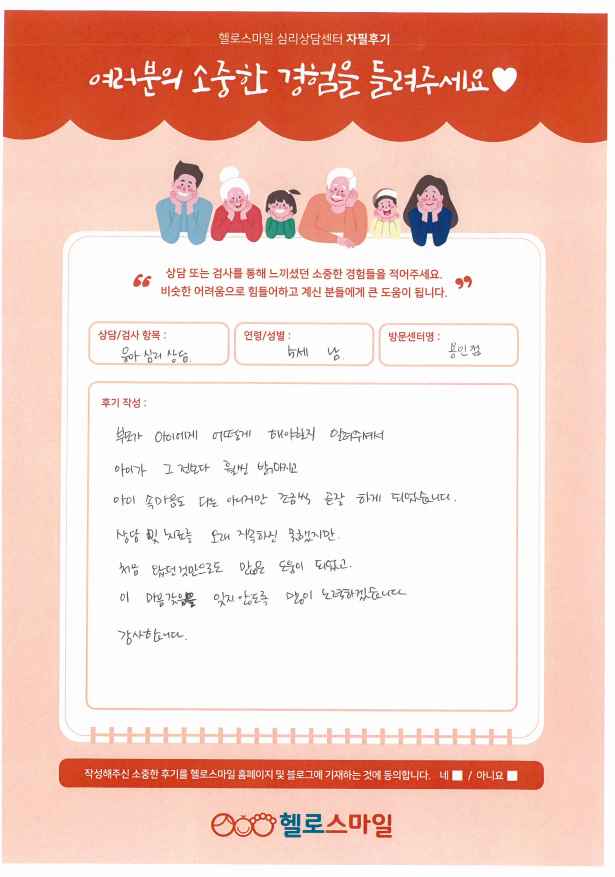 헬로스마일 심리상담센터 자필후기
여러분의 소중한 경험을 들려주세요
상담 또는 검사를 통해 느끼셨던 소중한 경험들을 적어주세요.
비슷한 어려움으로 힘들어하고 계신 분들에게 큰 도움이 됩니다.
상담/검사 항목 :
육아 심리 상담.
연령/성별 :
5세 남.
방문센터명 :
용인점
후기 작성 :
부모가 아이에게 어떻게 해야할지 알려주셔서
아이가 그 전보다 훨씬 밝아지고
아이 속마음도 다는 아니지만 조금씩 곧잘 하게 되었습니다.
상담 및 치료를 오래 지속하진 못했지만.
처음 했던것만으로도 많은 도움이 되었고.
이 마음갖음을 잊지 않도록 많이 노력하겠습니다
감사합니다.
작성해주신 소중한 후기를 헬로스마일 홈페이지 및 블로그에 기재하는 것에 동의합니다. 네 / 아니요
헬로스마일